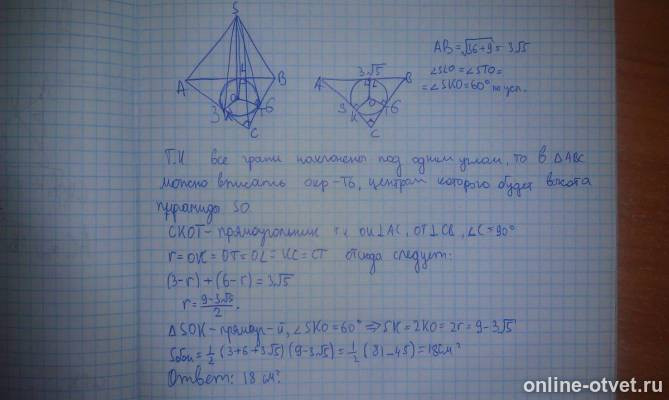 S
A B C O L K 3 6
A 3√5 B L O 3 K 6 C
AB = √36+9 = 3√5
∠SLO = ∠STO =
= ∠SKO = 60° по усл.
Т.к все грани наклонены под одним углом, то в △ABC
можно вписать окр-ть, центром которого будет высота
пирамиды SO.
CKOT - прямоугольник т.к OK⊥AC, OT⊥CB, ∠C = 90°
r = OK = OT = OL = KC = CT отсюда следует:
(3-r) + (6-r) = 3√5
r = (9-3√5)/2.
△SOK - прямоуг-й, ∠SKO = 60° ⇒ SK = 2KO = 2r = 9-3√5
Sбок = 1/2 (3+6+3√5)(9-3√5) = 1/2 (81-45) = 18см²
Ответ: 18 см².
online-otvet.ru